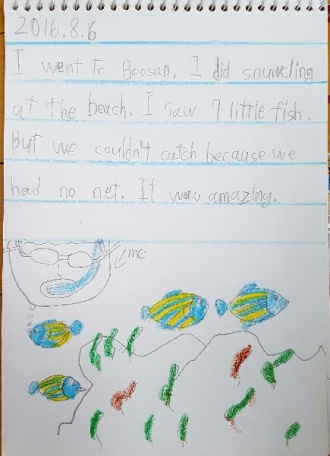 2016.8.6
I went to Boosan. I did snurkling
at the beach. I saw 7 little fish.
But we couldn't catch because we
had no net. It was amazing.
me